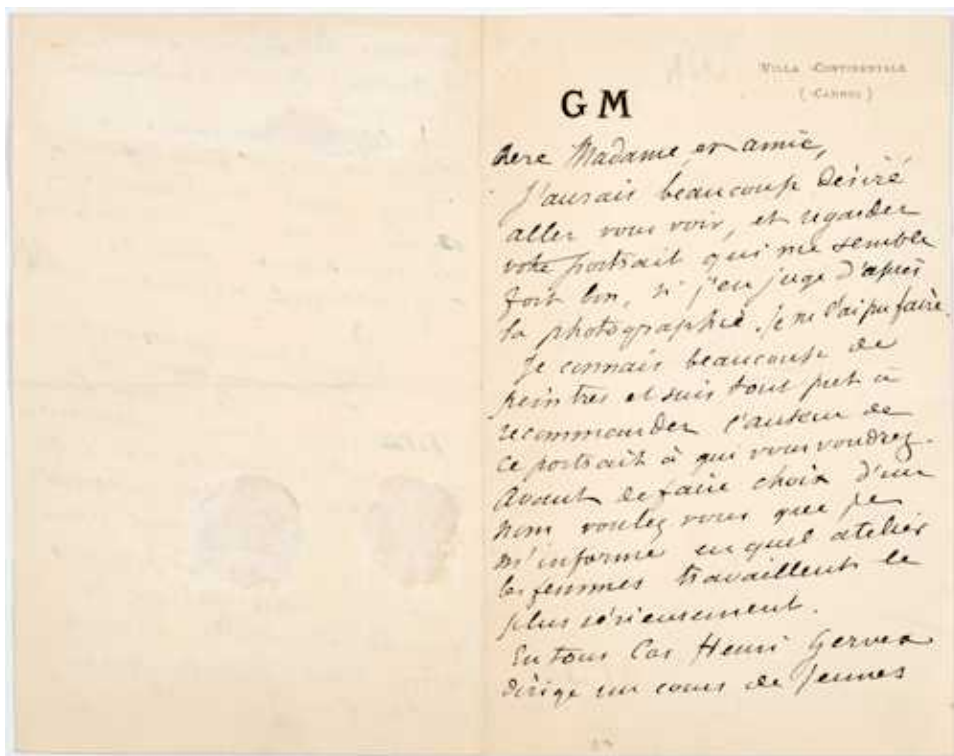 VILLA CONTINENTALE
(CANNES)
GM
Chere Madame et amie,
J'aurais beaucoup désiré
aller vous voir, et regarder
votre portrait qui me semble
fort bon, si j'en juge d'après
la photographie. Je ne l'ai pu faire.
Je connais beaucoup de
peintres et suis tout prêt à
recommander l'auteur de
ce portrait à qui vous voudrez.
Avant de faire choix d'un
nom voulez vous que je
m'informe en quel atelier
les femmes travaillent le
plus sérieusement.
En tous cas Henri Gervex
dirige un cours de jeunes